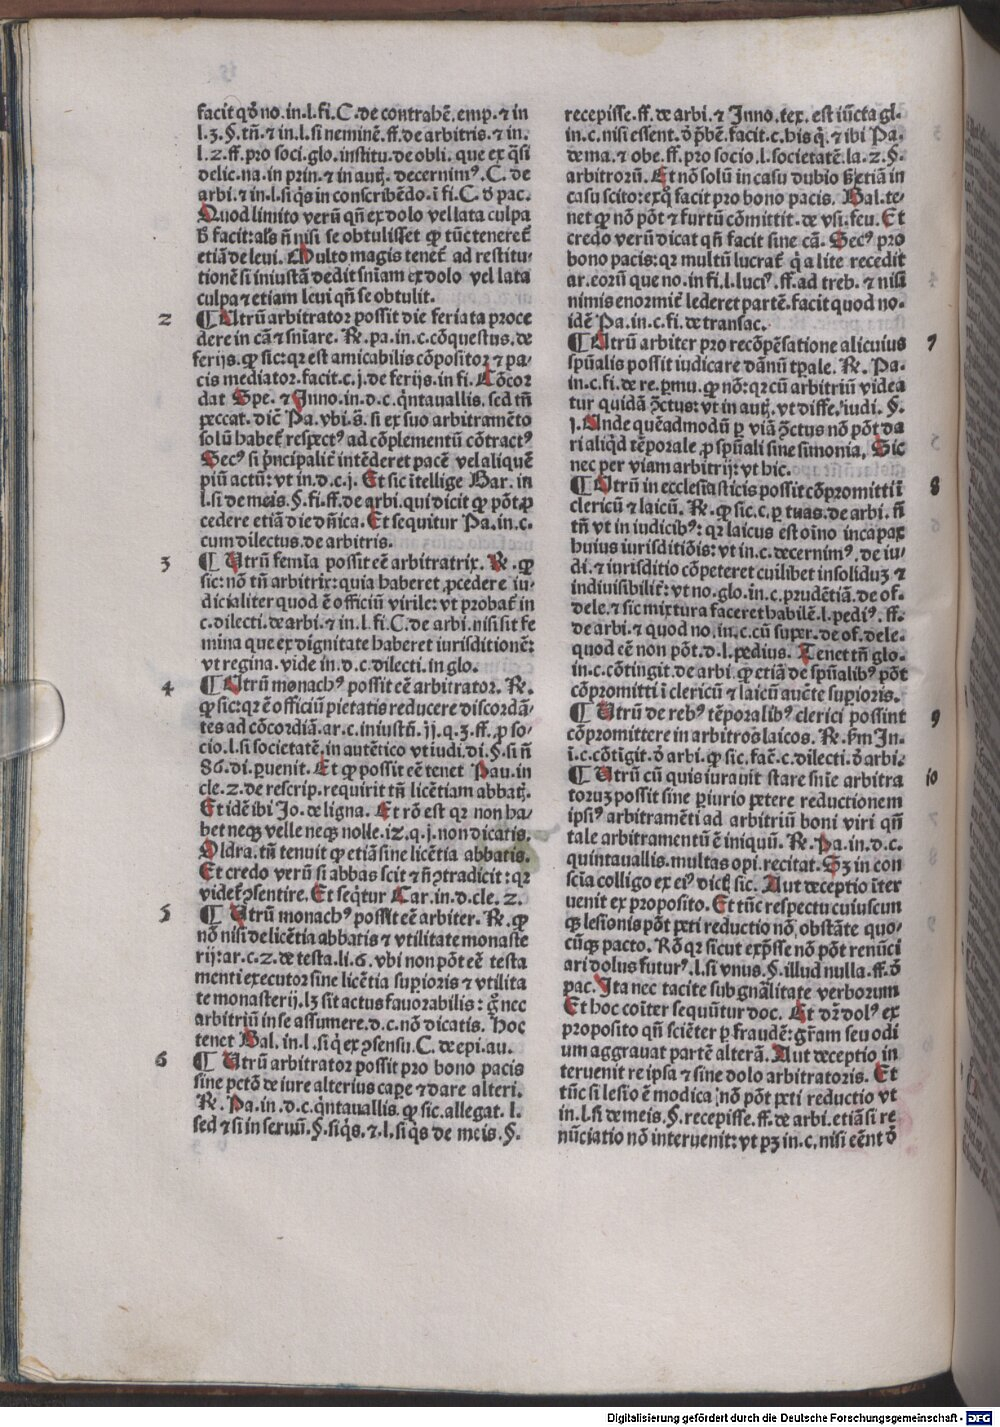 facit qđ no. in. l. fi. C. de contrahē. emp. ⁊ in
l. 3. §. tñ. ⁊ in. l. si neminē. ff. de arbitris. ⁊ in.
l. 2. ff. pro soci. glo. institu. de obli. que ex q̄si
delic. na. in prin. ⁊ in autħ. decernimꝰ. C. de
arbi. ⁊ in. l. si q̇s in conscribēdo. ī fi. C. đ pac.
Quod limito verū qñ ex dolo vel lata culpa
ħ facit: als̄ ñ nisi se obtulisset ꝙ tūc teneret̄
etiā de leui. Multo magis tenet̄ ad restitu-
tionē si iniustā dedit sn̄iam ex dolo vel lata
culpa ⁊ etiam leui qñ se obtulit.
2 ¶ Utrū arbitrator possit die feriata proce
dere in cā ⁊ sn̄iare. R̄. pa. in. c. cōquestus. de
ferijs. ꝙ sic: qꝛ est amicabilis cōpositor ⁊ pa-
cis mediator. facit. c. j. de ferijs. in fi. Cōcor
dat Spe. ⁊ Inno. in. d. c. q̇ntauallis. sed tñ
peccat. dic̄ Pa. vbi. s̄. si ex suo arbitramēto
solū habet̄ respectꝰ ad cōplementū cōtractꝰ
Secꝰ si pͥncipalit̄ intēderet pacē vel aliquē
piū actū: vt in. d. c. j. Et sic ītellige Bar. in
l. si de meis. §. fi. ff. de arbi. qui dicit ꝙ pōt ꝓ
cedere etiā die dñica. Et sequitur Pa. in. c.
cum dilectus. de arbitris.
3 ¶ Utrū femīa possit eē arbitratrix. R̄. ꝙ
sic: nō tñ arbitrix: quia haberet ꝓcedere iu-
dicialiter quod ē officiū virile: vt probat̄ in
c. dilecti. de arbi. ⁊ in. l. fi. C. de arbi. nisi sit fe
mina que ex dignitate haberet iurisditionē:
vt regina. vide in. d. c. dilecti. in glo.
4 ¶ Utrū monachꝰ possit eē arbitrator. R̄.
ꝙ sic: qꝛ ē officiū pietatis reducere discordā-
tes ad cōcordiā. ar. c. iniustū. jj. q. 3. ff. ꝓ so-
cio. l. si societatē. in autētico vt iudi. di. §. si ñ
86. di. ꝑuenit. Et ꝙ possit eē tenet Pau. in
cle. 2. de rescrip. requirit tñ licētiam abbat̄.
Et idē ibi Jo. de ligna. Et rō est qꝛ non ha-
bet neqꝫ velle neqꝫ nolle. 12. q. j. non dicatis.
Oldra. tñ tenuit ꝙ etiā sine licētia abbatis.
Et credo verū si abbas scit ⁊ ñ ꝯtradicit: qꝛ
videt̄ ꝯsentire. Et seq̄tur Car. in. d. cle. 2.
5 ¶ Utrū monachꝰ possit eē arbiter. R̄. ꝙ
nō nisi de licētia abbatis ⁊ vtilitate monaste
rij: ar. c. 2. de testa. li. 6. vbi non pōt eē testa
menti executor sine licētia supɩ̄oris ⁊ vtilita
te monasterij. lꝫ sit actus fauorabilis: g̊ nec
arbitriū in se assumere. d. c. nō dicatis. Hoc
tenet Bal. in. l. si q̇ ex ꝯsensu. C. de epi. au.
6 ¶ Utrū arbitrator possit pro bono pacis
sine pctō de iure alterius caꝑe ⁊ dare alteri.
R̄. Pa. in. d. c. q̇ntauallis. ꝙ sic. allegat. l.
sed ⁊ si in seruū. §. siq̇s. ⁊. l. si q̇s de meis. §.
recepisse. ff. de arbi. ⁊ Inno. tex. est iūcta gl-
in. c. nisi essent. đ p̄bē. facit. c. his q̇. ⁊ ibi Pa-
de ma. ⁊ obe. ff. pro socio. l. societatē. la. 2. §.
arbitrorū. Et nō solū in casu dubio sʒ etiā in
casu scito: ex q̊ facit pro bono pacis. Bal. te-
net ꝙ nō pōt ⁊ furtū cōmittit. de vsi. feu. Et
credo verū dicat qñ facit sine cā. Secꝰ pro
bono pacis: qꝛ multū lucrat̄ q̇ a lite recedit
ar. eorū que no. in fi. l. luciꝰ. ff. ad treb. ⁊ nisi
nimis enormit̄ lederet partē. facit quod no-
idē Pa. in. c. fi. de transac.
¶ Utrū arbiter pro recōpēsatione alicuius 7
spūalis possit iudicare dānū tꝑale. R̄. Pa.
in. c. fi. de re. ꝑmu. ꝙ nō: qꝛ cū arbitriū videa
tur quidā ꝯctus: vt in autħ. vt diffe. iudi. §.
j. Unde quēadmodū ꝑ viā ꝯctus nō pōt da
ri aliqd̄ tēporale ꝓ spūali sine simonia. Sic
nec per viam arbitrij: vt hic.
¶ Utrū in ecclesiasticis possit cōpromitti ī 8
clericū ⁊ laicū. R̄. ꝙ sic. c. ꝑ tuas. de arbi. sʒ
tñ vt in iudicibꝰ: qꝛ laicus est oīno incapax
huius iurisditiōis: vt in. c. decernimꝰ. de iu-
di. ⁊ iurisditio cōpeteret cuilibet insoliduꝫ ⁊
indiuisibilit̄: vt no. glo. in. c. prudētiā. de of-
dele. ⁊ sic mixtura faceret habilē. l. pediꝰ. ff.
de arbi. ⁊ quod no. in. c. cū super. de of. dele-
quod eē non pōt. d. l. pedius. Tenet tñ glo-
in. c. cōtingit. de arbi. ꝙ etiā de spūalibꝰ pōt
cōpromitti ī clericū ⁊ laicū aucte supɩ̄oris.
¶ Utrū de rebꝰ tēporalibꝰ clerici possint 9
cōpromittere in arbitros laicos. R̄. fm̄ In-
ī. c. cōtīgit. đ arbi. ꝙ sic. fac̄. c. dilecti. đ arbi.
¶ Utrū cū quis iurauit stare sn̄ie arbitra 10
toruꝫ possit sine ꝑiurio petere reductionem
ipsiꝰ arbitramēti ad arbitriū boni viri qñ
tale arbitramentū ē iniquū. R̄. Pa. in. d. c.
quintauallis. multas opi. recitat. Sꝫ in con
scīa colligo ex eiꝰ dictꝭ sic. Aut deceptio īter
uenit ex proposito. Et tūc respectu cuiuscun
qꝫ lesionis pōt peti reductio nō obstāte quo-
cūqꝫ pacto. Rō qꝛ sicut exp̄sse nō pōt renūci
ari dolus futurꝰ. l. si vnus. §. illud nulla. ff. đ
pac. Ita nec tacite sub gn̄alitate verborum
Et hoc coīter sequūtur doc. Et dr̄ dolꝰ ex
proposito qñ sciēter ꝑ fraudē: gr̄am seu odi
um aggrauat partē alterā. Aut deceptio in
teruenit re ipsa ⁊ sine dolo arbitratoris. Et
tūc si lesio ē modica nō pōt peti reductio vt
in. l. si de meis. §. recepisse. ff. de arbi. etiā si re
nūciatio nō interuenit: vt pꝫ in. c. nisi eēnt đ
Digitalisierung gefördert durch die Deutsche Forschungsgemeinschaft - DFG